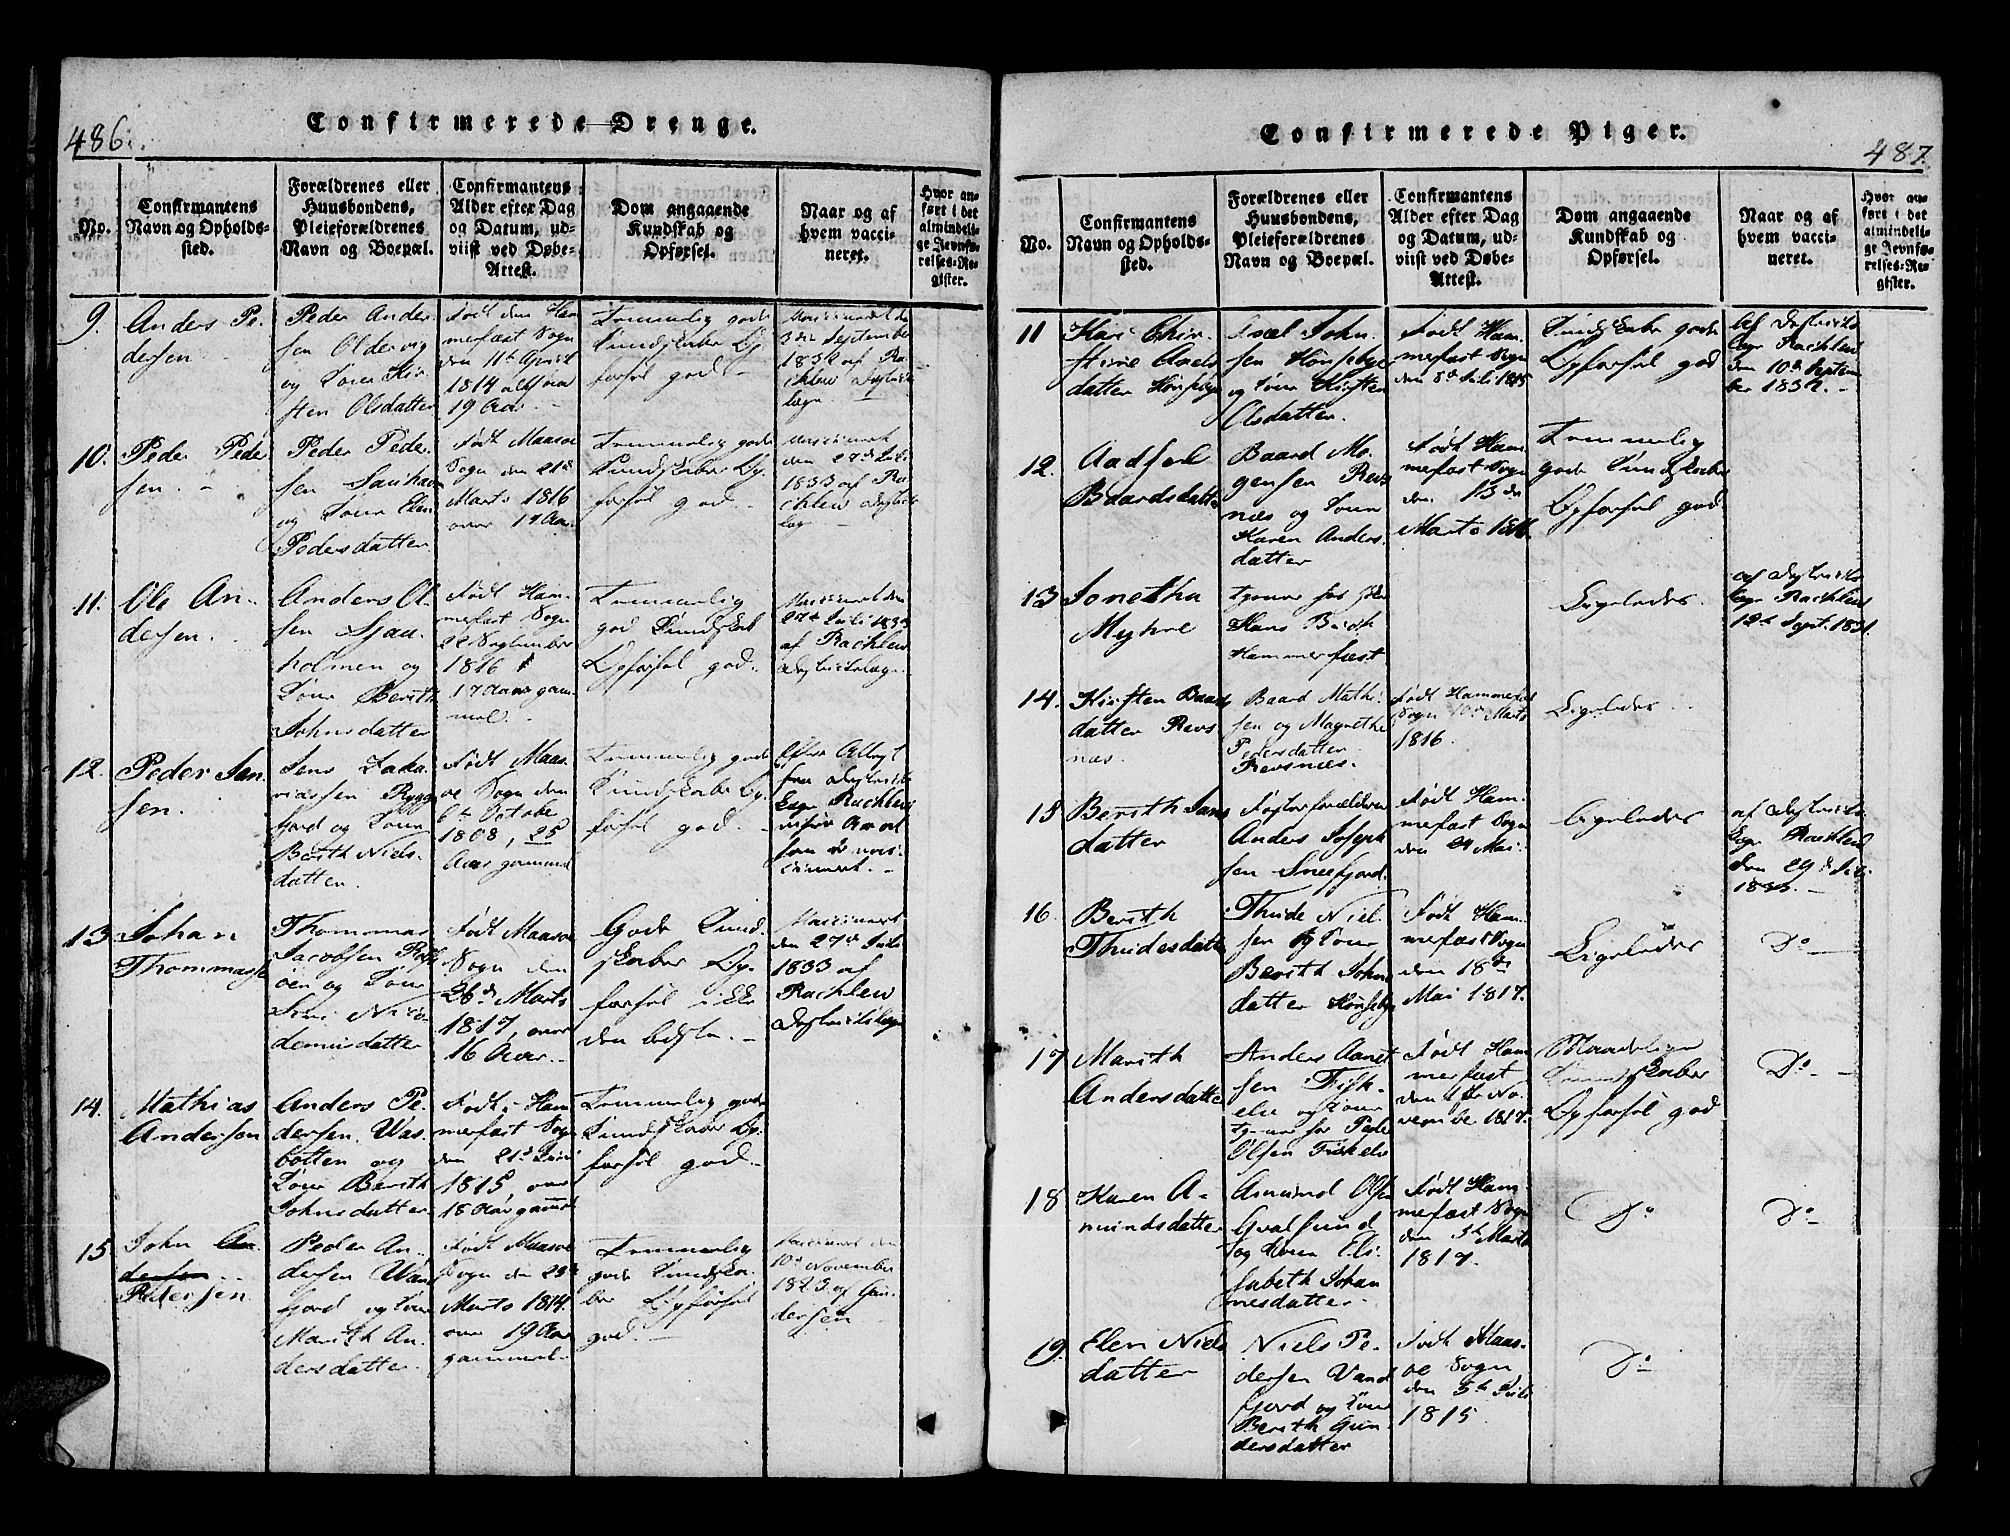 486.
Confirmerede Drenge.
No.
Confirmantens
Navn og Opholds-
sted.
Forældrenes eller
Huusbondens,
Pleieforældrenes
Navn og Boepæl.
Confirmantens
Alder efter Dag
og Datum, ud-
viist ved Døbe-
Attest.
Dom angaaende
Kundskab og
Opførsel.
Naar og af
hvem vacci-
neret.
Hvor an-
ført i det
almindeli-
ge Jevnfø-
relses-Re-
gister.
9.
Anders Pe-
dersen
Peder Ander-
sen Oldervig
og Kone Kir-
sten Olsdatter
Født den Ham-
mefast Sogn
den 11te April
1814 altsaa
19 Aar.
Temmelig gode
Kundskaber Op-
førsel god
Vaccineret d
3die September
1832 af Ra-
chlew Distrikts-
læge
10.
Peder Peder
sen.
Peder Peder
sen
og Kone Elen
Pedersdatter
Født Maasøe
Sogn den 21de
Marts 1816
over 17 Aar
Temmelig gode
Kundskaber Op-
førsel god
Vaccineret
den 27de Juli
1833 af Ra-
chlew Distrikts
læge
11.
Ole An-
dersen.
Anders Ol-
sen
holmen og
Kone Berith
Johnsdatter
Født Ham-
mefast Sogn
22 September
1816
17 Aar gam-
mel.
Temmelig
god Kundskab
Opførsel god
Vaccineret den
27de Juli 1833
af Rachlew
Distriktslæge
12.
Peder Jan
sen.
Jens Zaka-
riassen
fjord og Kone
Berith Niels-
datter.
Født Maas-
øe Sogn den
6te Octobe
1808, 25
Aar gammel
Temmelig gode
Kundskaber Op-
førsel god
Efter
fra Distrikts
Læge Rachlew
13
Johan
Thommasse
Thommas
Jacobsen
øen og Kone
Nico-
demusdatter
Født Maasøe
Sogn den
26de Marts
1817, over
16 Aar.
Gode Kund-
skaber Op-
førsel ikke
den bedste
Vaccineret
den 27de Juli
1833 af
Rachlew
Distriktslæge
14.
Mathias
Andersen
Anders Pe-
dersen Was-
botten og
Kone Berith
Johnsdatter
Født i Ham-
merfast Sogn
den 21de Juni
1815 over
18 Aar gammel
Temmelig gode
Kundskaber Op-
førsel god
15
John An-
dersen
Pedersen
Peder An-
dersen Wan
fjord og Kone
Marith An-
dersdatter
Født Maasøe
Sogn den 23de
Marts 1814.
over 19 Aar
gammel
Temmelig
gode Kundska-
ber Opførsel
god
Vaccineret den
10de November
1823 af Gun-
dersen
487.
Confirmerede Piger.
No.
Confirmantens
Navn og Opholds-
sted.
Forældrenes eller
Huusbondens,
Pleieforældrenes
Navn og Boepæl.
Confirmantens
Alder efter Dag
og Datum, ud-
viist ved Døbe-
Attest.
Dom angaaende
Kundskab og
Opførsel.
Naar og af
hvem vacci-
neret.
Hvor an-
ført i det
almindeli-
ge Jevnfø-
relses-Re-
gister.
11
Kari Chir-
stine Axels
datter Hønseby
Axel John-
sen Hønseby
og Kone Kirsten
Olsdatter.
Født Ham-
mefast Sogn
den 8de Juli 1815
Kundskaber gode
Opførsel god
af Distrikts
læge Rachlew
den 10de Septem
ber 1832.
12.
Aadsel
Baardsdatte
Baard Mo-
gensen Revs
næs og Kone
Karen Anders-
datter
Født Ham-
mefast Sogn
den 13de
Marts 1816.
Temmelig
gode Kundskaber
Opførsel god
13
Jonetha
Myhre
tjener hos
Hans Buck
Hammerfæst
Ligeledes.
af Distrikts
læge Rachlew
12te Sept. 1831.
14.
Kirsten Baards
datter Revs
næs.
Baard Mathi-
sen og Magrethe
Pedersdatter
Revsnæs.
Født Hammefas
Sogn 10de Marts
1816.
Ligeledes
15
Berith Jans
datter
Fosterforældrene
Anders Joseph
sen Sneefjord.
Født Ham-
mefast Sogn
den 24 Mai
ligeledes
af Distrikts
læge Rachlew
den 29de Juli
1833.
16.
Berith
Thudesdatter
Thude Niel-
sen og Kone
Berith Johns
datter Hønseby
Født Ham-
mefast Sogn
den 18de
Mai 1817.
Ligeledes
Do
17
Marith
Andersdatte
Anders
sen Fisk-
else og Kone
tjener hos Peder
Olsen Fiskels
Født Ham
merfast
den 1ste No-
vembe 1817.
Maadelige
Kundskaber
Opførsel god
Do
18
Karen A-
mundsdatter
Amund Olsen
Qvalsund
og Kone Eli-
sabeth Johan
nesdatter.
Født Ham-
mefast Sogn
den 5te Marts
1817.
Do
Do
19.
Elen Niels
datter
Niels Pe-
dersen Vand
fjord og Kone
Berith Gun-
dersdatter
Født Maas-
øe Sogn
den 5te Juli
1815.
Do